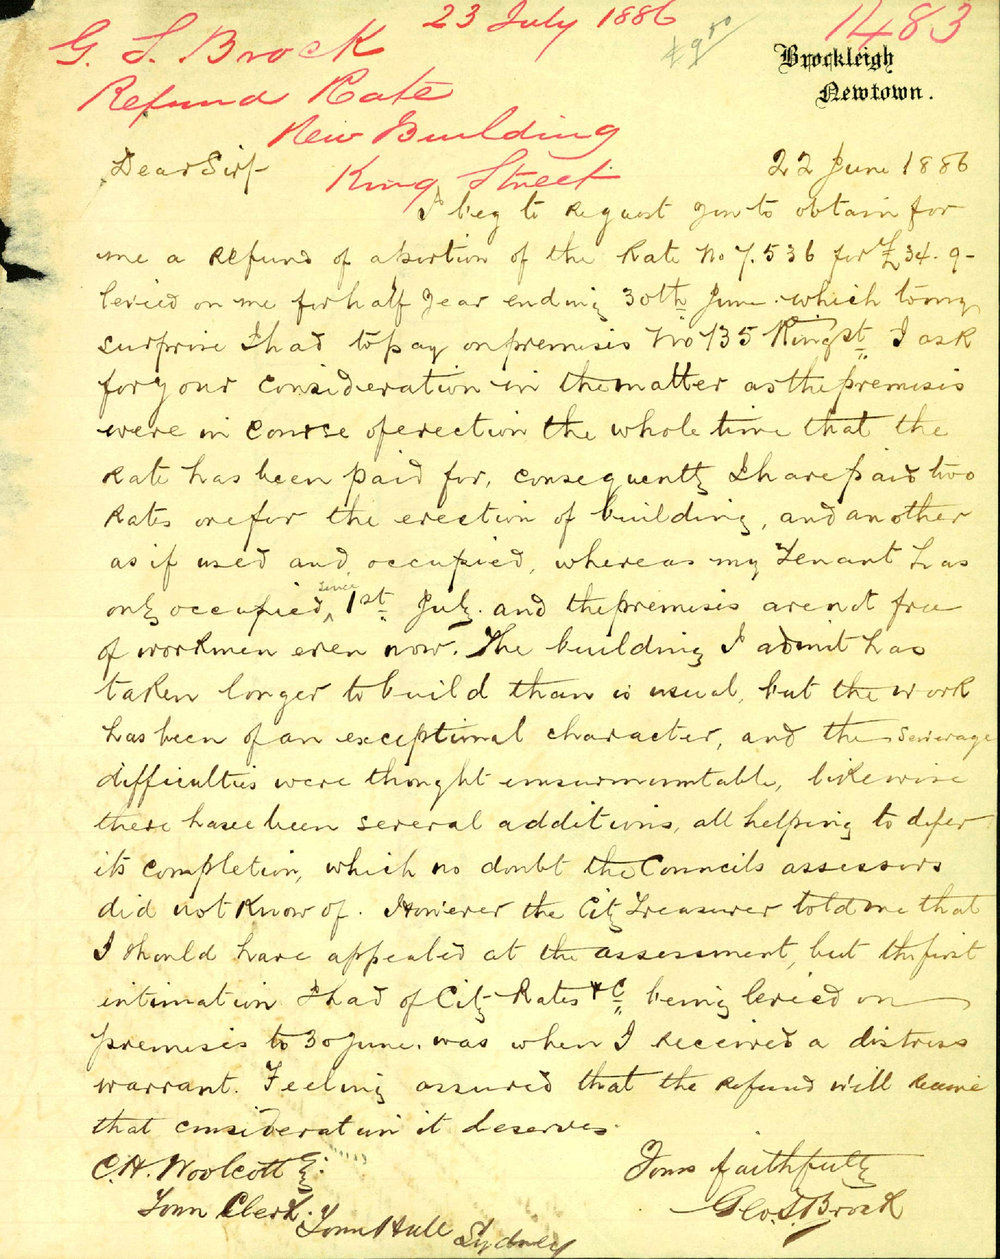 23 July 1886
1483
G. S. Brock
Refund Rate
New Building
King Street
£9 50
Brockleigh
Newtown.
22 June 1886
Dear Sir/-
I beg to request you to obtain for
me a Refund of a portion of the Rate No 7.536 for £34.9-
levied on me for half year ending 30th June. which to my
surprise I had to pay on premises No 135 King st. I ask
for your consideration in the matter as the premises
were in course of erection the whole time that the
Rate has been paid for, consequently I have paid two
Rates one for the erection of building, and another
as if used and occupied, whereas my Tenant has
only occupied, since 1st July. and the premises are not free
of workmen even now. The building I admit has
taken longer to build than is usual, but the work
has been of an exceptional character, and the sewerage
difficulties were thought unsurmountable, likewise
there have been several additions, all helping to defer
its completion, which no doubt the Councils assessors
did not know of. However the City Treasurer told me that
I should have appealed at the assessment, but the first
intimation I had of City Rates &c being levied on
premises to 30 June. was when I received a distress
warrant. Feeling assured that the refund will receive
that consideration it deserves.
Yours faithfully
Geo. S. Brock
C. H. Woolcott Esq.
Town Clerk.
Town Hall Sydney